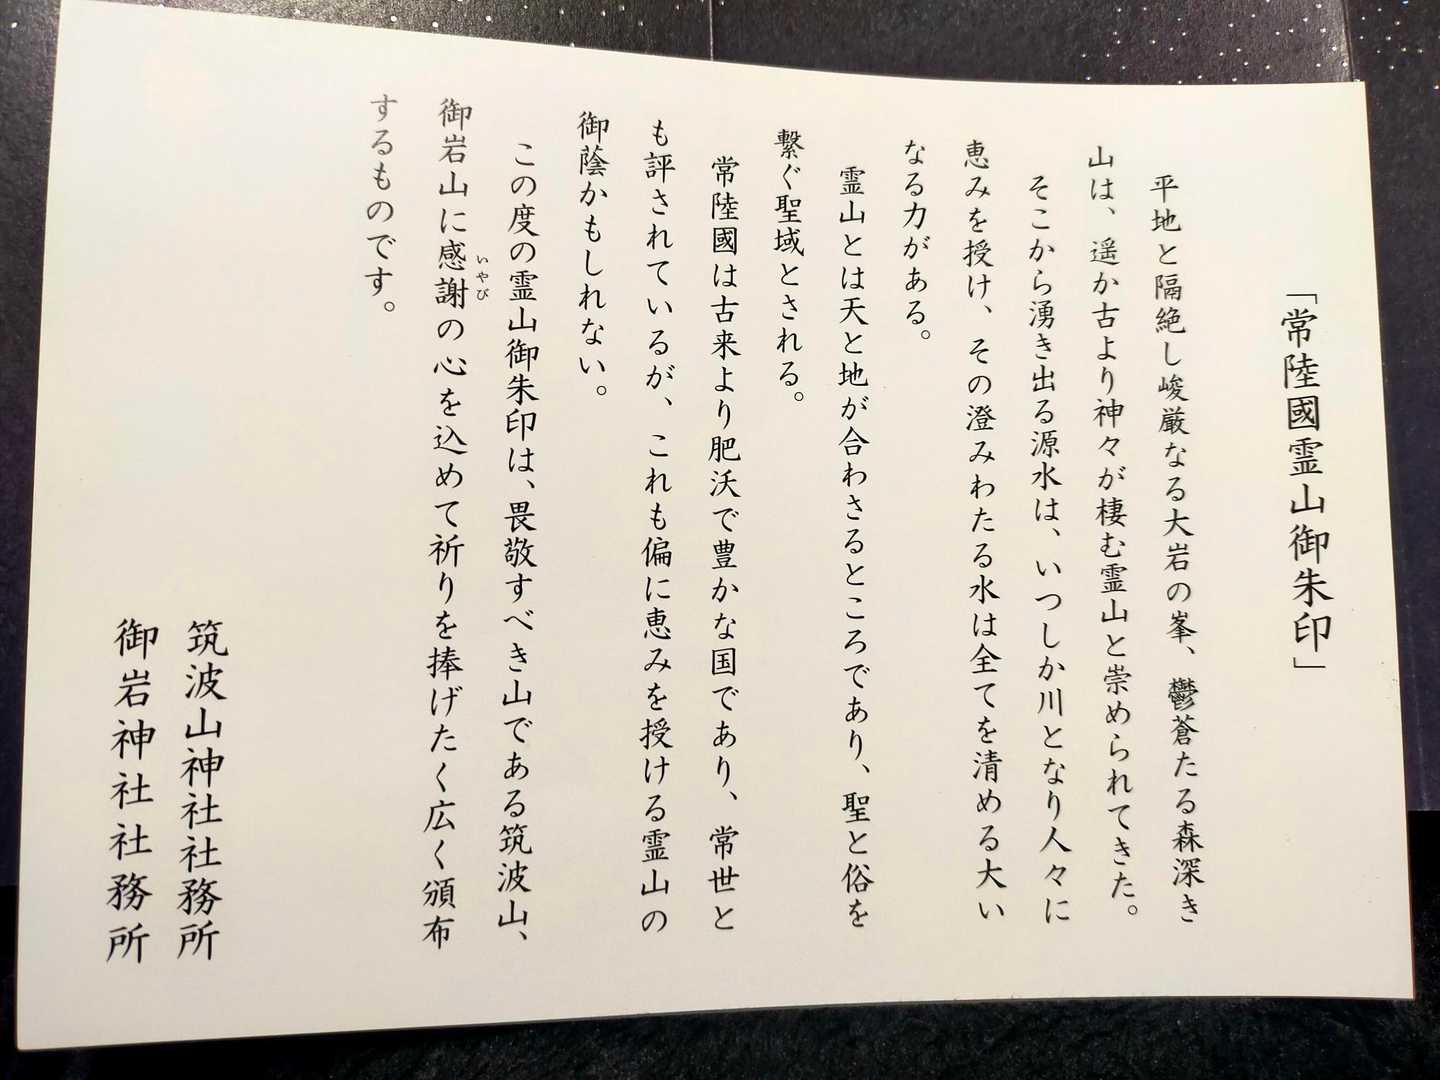 「常陸國霊山御朱印」
平地と隔絶し峻厳なる大岩の峯、鬱蒼たる森深き
山は、遥か古より神々が棲む霊山と崇められてきた。
そこから湧き出る源水は、いつしか川となり人々に
恵みを授け、その澄みわたる水は全てを清める大い
なる力がある。
霊山とは天と地が合わさるところであり、聖と俗を
繋ぐ聖域とされる。
常陸國は古来より肥沃で豊かな国であり、常世と
も評されているが、これも偏に恵みを授ける霊山の
御蔭かもしれない。
この度の霊山御朱印は、畏敬すべき山である筑波山、
御岩山に感謝の心を込めて祈りを捧げたく広く頒布
いやび
するものです。
筑波山神社社務所
御岩神社社務所